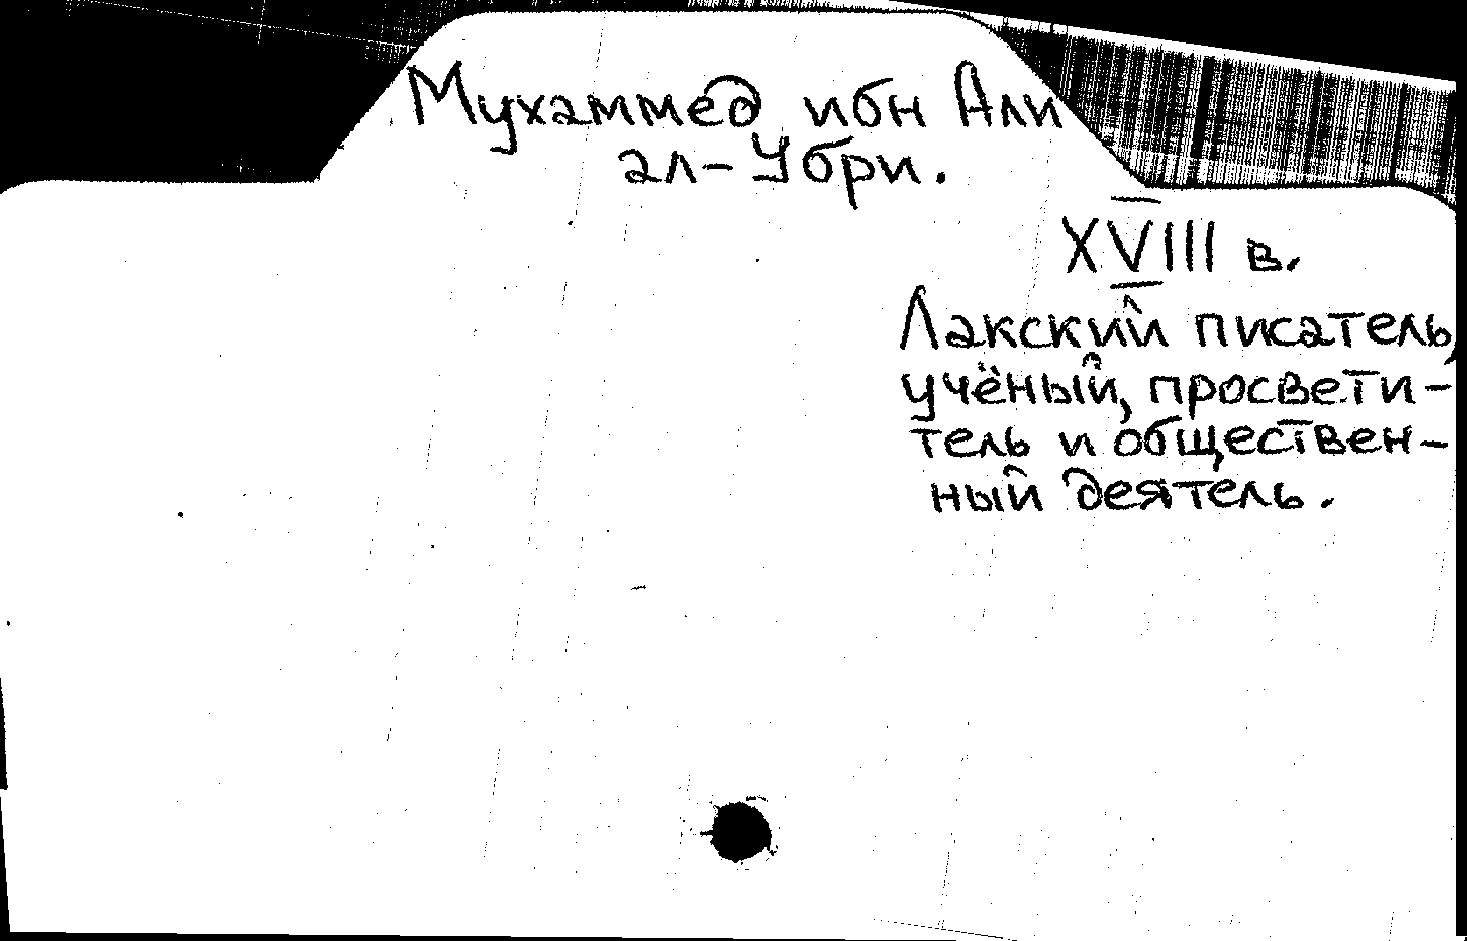 Мухаммед ибн Али
ал-Убри.
XVIII в.
Лакский писатель,
учёный, просвети-
тель и обществен-
ный деятель.